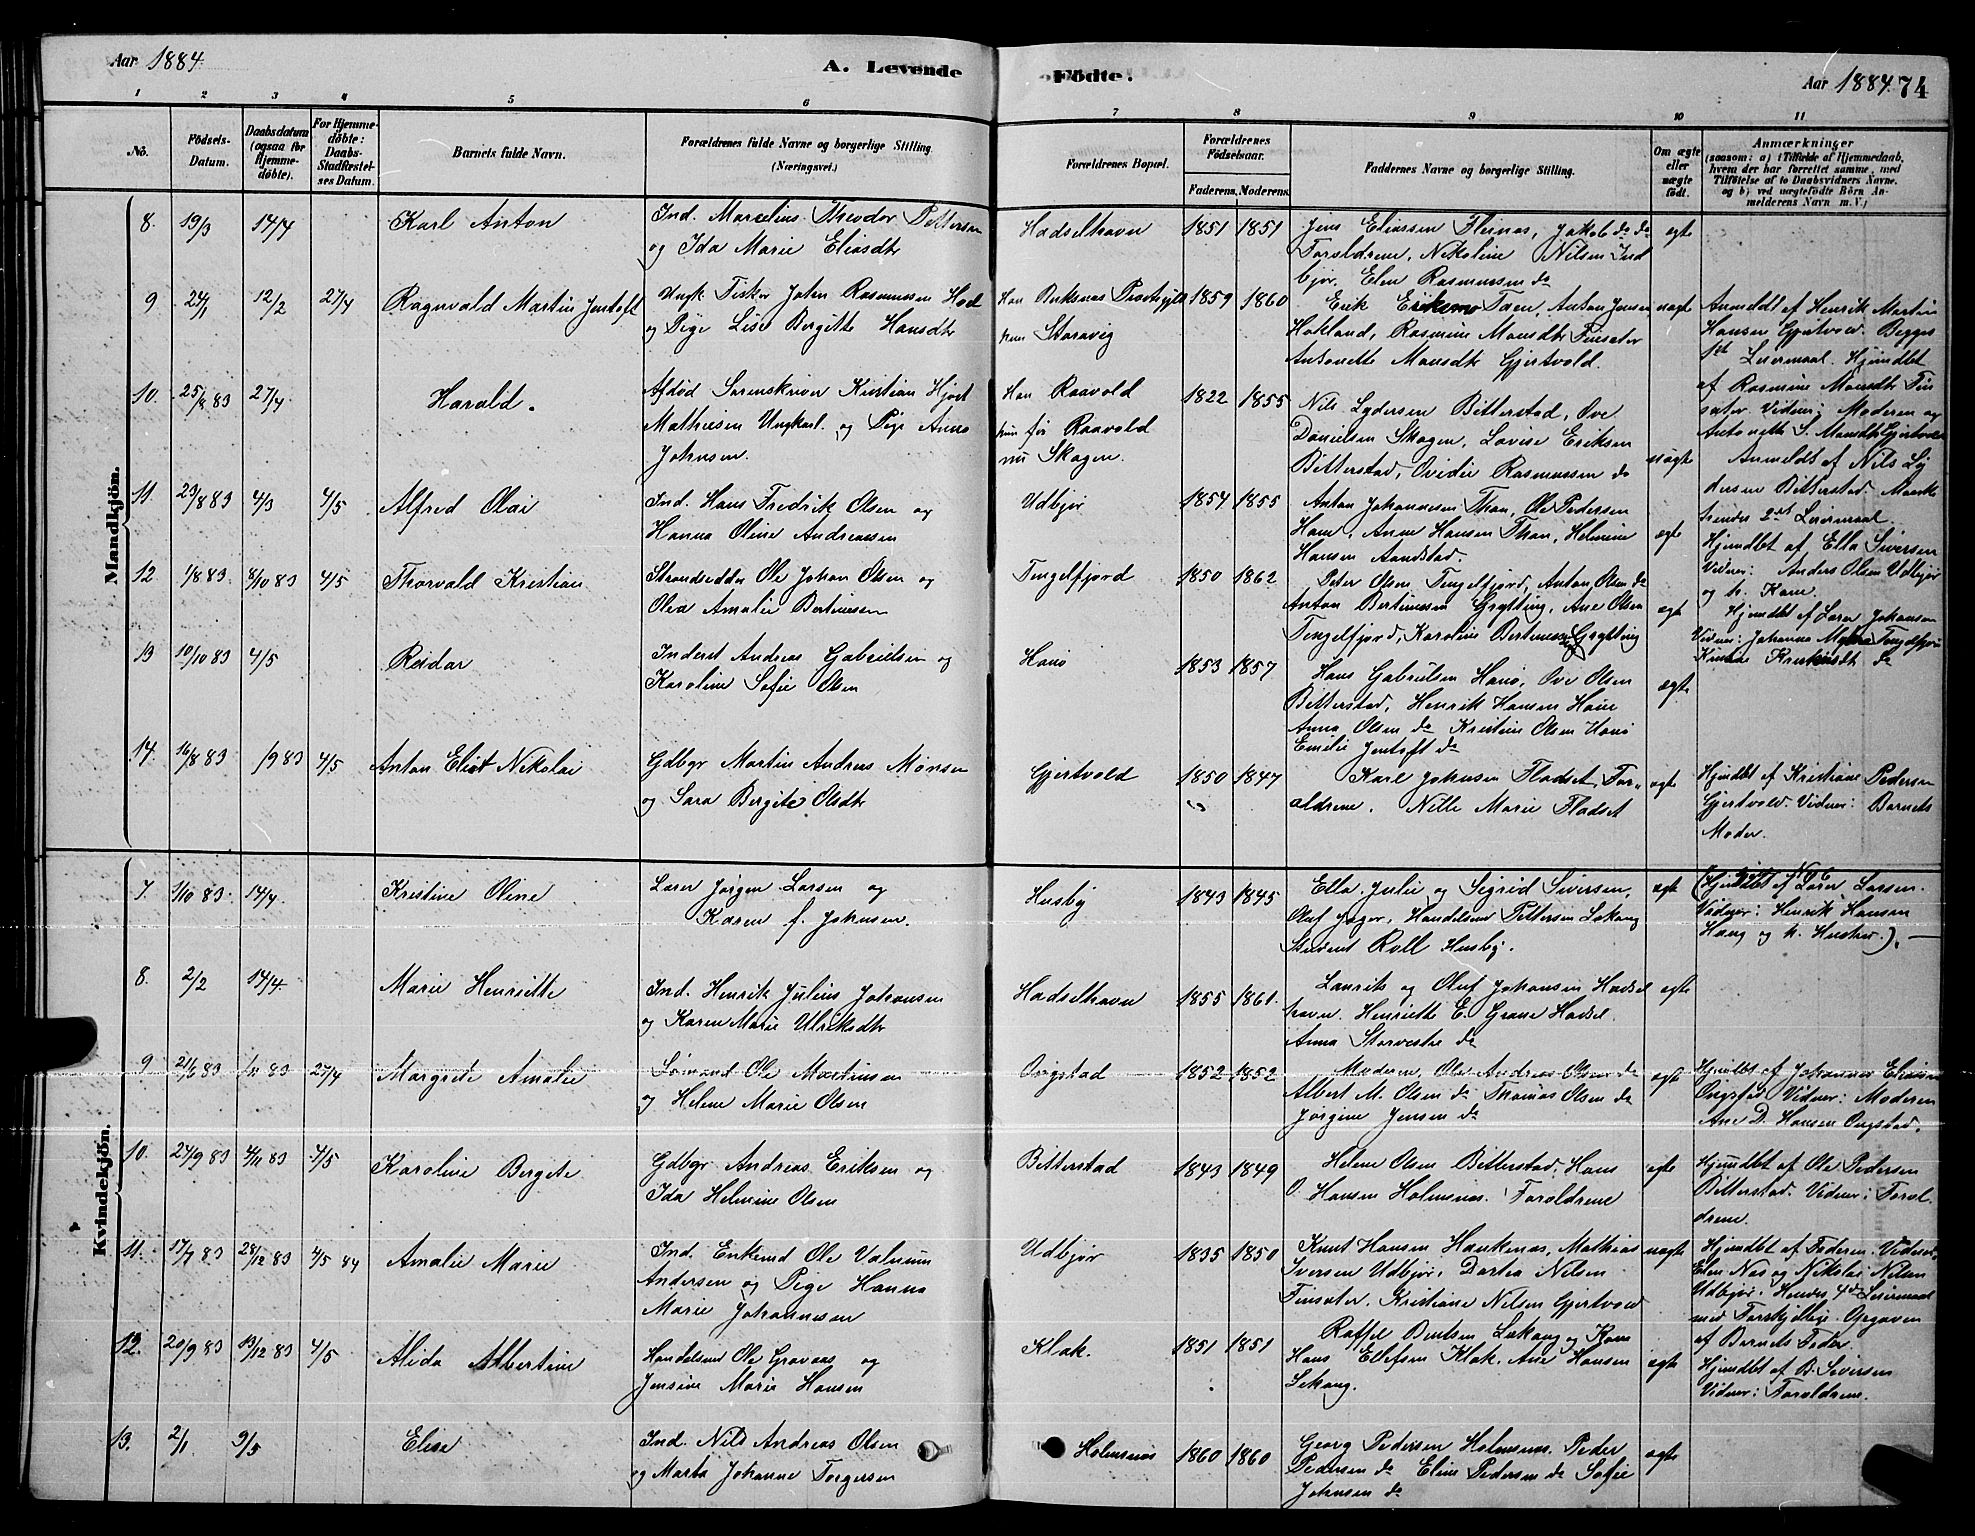 Aar 1884.
A. Levende Födte.
Aar 1884. 74
1 2 3 4 5 6 7 8 9 10 11
No.
Födsels-Datum.
Daabsdatum (ogsaa for Hjemme-döbte).
For Hjemme-döbte: Daabs-Stadfæstel-ses Datum.
Barnets fulde Navn.
Forældrenes fulde Navne og borgerlige Stilling. (Næringsvei.)
Forældrenes Bopæl.
Forældrenes Födselsaar.
Faderens. Moderens.
Faddernes Navne og borgerlige Stilling.
Om ægte eller uægte födt.
Anmærkninger
(saasom: a) i Tilfælde af Hjemmedaab,
hvem der har forrettet samme, med
Tilföielse af to Daabsvidners Navne,
og b) ved uægtefödte Börn An-
melderens Navn m. V.)
Mandkjön.
8. 19/3 14/4 Karl Anton
Ind. Marselius Theodor Pettersen
og Ida Marie Eliasdtr
Hadselhavn 1851 1851
Jens Eliassen Fleines, Jakob do do
Forældrene, Nikoline Nilsen Ind
bjør. Elen Rasmussen do
ægte
9 24/1 12/2 27/4 Ragnvald Martin Jentoft
Ungk. Fisker Johan Rasmussen Han
og Pige Lise Bergitte Hansdtr
Han Buksnæs Præstegjeld
hun Storavig
1859 1860
Erik Eriksen Taen, Anton Jensen
Hokland, Rasmine Monsdtr Finsæter
Antonette Monsdtr Gjertvold.
uægte
Anmeldt af Henrik Martin
Hansen Gjertvold. Begges
1ste Leiermaal. Hjemdbt
af Rasmine Monsdtr Fin
sæter. Vidner: Moderen og
Antonette S. Monsdtr Gjertvold
10. 25/8 83 27/4 Harald.
Afdød Sorenskriver Kristian Hjort
Mathiesen Ungkarl. og Pige Anna
Johnsen.
Han Raavold
hun før Raavold
nu Skagen.
1822 1855
Nils Lydersen Bitterstad, Ove
Danielsen Skagen, Lovise Eriksen
Bitterstad, Ovidie Rasmussen do
uægte
Anmeldt af Nils Ly
dersen Bitterstad.
hendes 2det Leiermaal
11. 23/8 83 4/3 4/5 Alfred Olai
Ind. Hans Fredrik Olsen og
Hanna Oline Andreassen
Udbjør 1854 1855
Anton Johannesen Than, Ole Pedersen
Hane, Anne Hansen Than, Helmine
Hansen Aandstad.
ægte
Hjemdbt af Ella Siversen
Vidner: Anders Olsen Udbjør
og h. Kone.
12 1/8 83 8/10 83 4/5 Thorvald Kristian
Strandsidder Ole Johan Olsen og
Olea Amalie Bertinussen
Tengelfjord 1850 1862
Peter Olsen Tengelfjord, Anton Olsen do
Anton Bertinussen Grytting, Ane Olsen
Tengelfjord, Karoline Bertinussen Grytting
ægte
Hjemdbt af Lærer Johansen
Vidner: Johanna Tengelfjor
do
13 10/10 83 4/5 Reidar
Inderst Andreas Gabrielsen og
Karoline Sofie Olsen
Hanø 1853 1857
Hans Gabrielsen Hanø, Ove Olsen
Bitterstad, Henrik Hansen Hane
Anna Olsen do Kristine Olsen Hanø
Emilie Jentoft do
ægte
14. 16/8 83 /9 83 4/5 Anton Eliot Nikolai
Gdbgr Martin Andreas Mønsen
og Sara Bergite Olsdtr
Gjertvold 1850 1847
Karl Johnsen Fladset, For-
ældrene. Nelle Marie Fladset
ægte
Hjemdbt af Kristiane Pedersen
Gjertvold. Vidner: Barnets
Moder.
Kvindekjön.
7. 1/10 83 14/4 Kristine Oline
Lærer Jørgen Larsen og
Karen f. Johnsen.
Husby 1843 1845
Ella, Julie og Sigrid Siversen,
Oluf Jæger, Handelsm Pettersen Lekang
Student Roll Husby.
ægte
(Hjemdbt af Lærer Larsen.
Vidner: Henrik Hansen
Haug og h. Hustru).
8. 2/2 14/4 Marie Henriette
Ind. Henrik Julius Johansen
og Karen Marie Ulriksdtr
Hadselhavn 1855 1861.
Laurits og Oluf Johansen Hadsel
havn. Henriette E. Grane Hadsel.
Anna Storvestre do
ægte
9 21/6 83 /11 83 27/4 Margrete Amalie
Sømand Ole Martinsen
og Helene Marie Olsen
Ongstad 1852 1852
Moderen, Ole Andreas Olsen do
Albert M. Olsen do Thomas Olsen do
Jørgine Jensen do
ægte
Hjemdbt af Johannes Eliassen
Ongstad. Vidner: Moderen
Ane D. Hansen Ongstad.
10. 24/9 83 4/11 83 4/5 Karoline Bergete
Gdbgr Andreas Eriksen og
Ida Helmine Olsen
Bitterstad 1843 1849
Helene Olsen Bitterstad, Hans
O. Hansen Holmsnes. Forældrene
ægte
Hjemdbt af Ole Pedersen
Bitterstad. Vidner: Foræl
drene.
11. 17/7 83 28/12 83 4/5 84 Amalie Marie
Ind. Enkemd Ole Valnum
Andersen og Pige Hanna
Marie Johannesen
Udbjør 1835 1850
Knut Hansen Haukenes, Mathias
Iversen Udbjør, Dortea Nilsen
Finsæter, Kristiane Nilsen Gjertvold
uægte
Hjemdbt af Federen. Vidner:
Elen Næs og Nikolai Nilsen
Udbjør. Hendes 4de Leiermaal
med Forskjellige. Opgaven
af Barnets Fader.
12. 20/9 83 13/12 83 4/5 Alida Albertine
Handelsmd Ole Gravaas og
Jensine Marie Hansen
Klak. 1851 1851
Raffel Bentsen Lekang og Kone
Hans Ellefsen Klak, Ane Hansen
Lekang.
ægte
Hjemdbt af B. Siversen
Vidner: Forældrene.
13. 2/1 9/5 Elise
Ind. Nils Andreas Olsen
og Marta Johanne Torgersen
Holmsnes 1860 1860
Georg Pedersen Holmsnes. Peder
Pedersen do Eline Pedersen do Sofie
Johnsen do
ægte